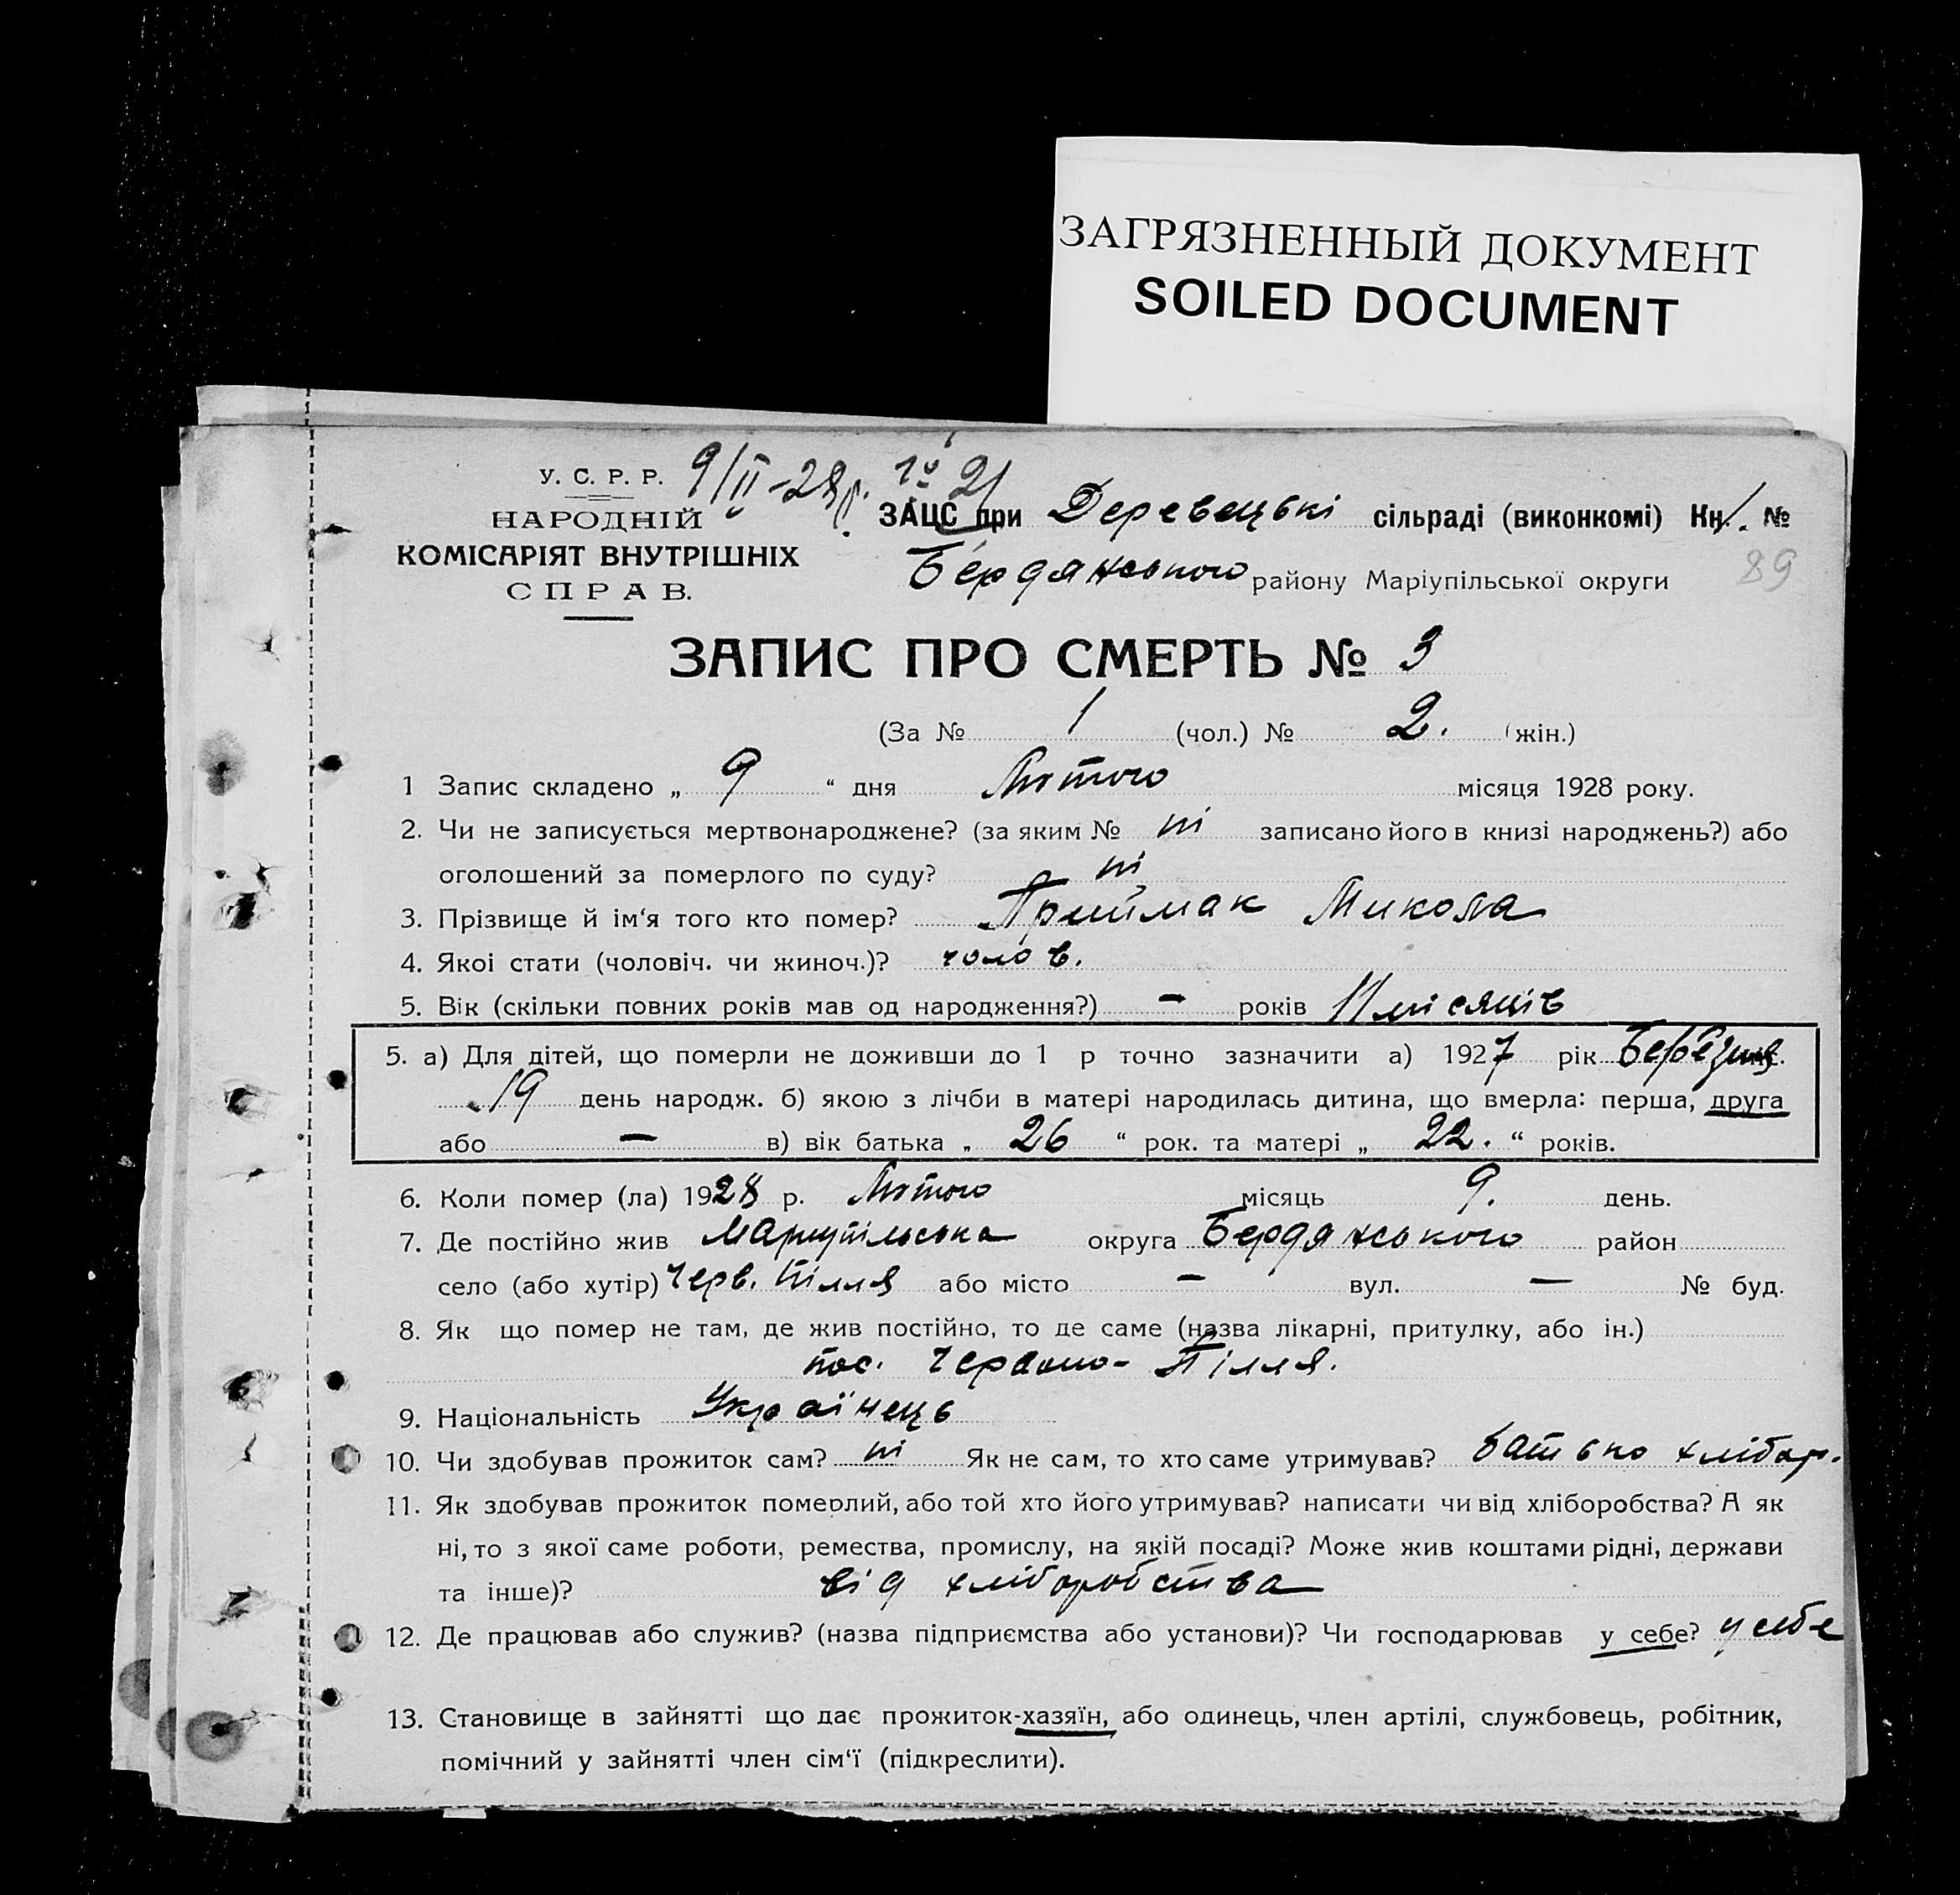 ЗАГРЯЗНЕННЫЙ ДОКУМЕНТ
SOILED DOCUMENT
У. С. Р. Р. 9/II-28р. № 21
НАРОДНІЙ
КОМІСАРІЯТ ВНУТРІШНІХ
СПРАВ.
ЗАЦС при Деревецькі сільраді (виконкомі) Кн. 1. №
Бердянського району Маріупільської округи 89
ЗАПИС ПРО СМЕРТЬ № 3
(За № 1 (чол.) № 2. (жін.)
1 Запис складено „ 9 “ дня Лютого місяця 1928 року.
2. Чи не записується мертвонароджене? (за яким № ні записано його в книзі народжень?) або
оголошений за померлого по суду? ні
3. Прізвище й ім‘я того кто помер? Приймак Микола
4. Якоі стати (чоловіч. чи жиноч.)? чолов.
5. Вік (скільки повних років мав од народження?) – років 11 місяців
5. а) Для дітей, що померли не доживши до 1 р точно зазначити а) 1927 рік Березня
19 день народж. б) якою з лічби в матері народилась дитина, що вмерла: перша, друга
або – в) вік батька „ 26 “ рок. та матері „ 22. “ років.
6. Коли помер (ла) 1928 р. Лютого місяць 9. день.
7. Де постійно жив Маріупільська округа Бердянського район
село (або хутір) Черв. Пілля або місто – вул. – № буд.
8. Як що помер не там, де жив постійно, то де саме (назва лікарні, притулку, або ін.)
пос. Червоно-Пілля.
9. Національність Українець
10. Чи здобував прожиток сам? ні Як не сам, то хто саме утримував? батько хлібор.
11. Як здобував прожиток померлий, або той хто його утримував? написати чи від хліборобства? А як
ні, то з якої саме роботи, ремества, промислу, на якій посаді? Може жив коштами рідні, держави
та інше)? від хліборобства
12. Де працював або служив? (назва підприємства або установи)? Чи господарював у себе? у себе
13. Становище в зайнятті що дає прожиток-хазяїн, або одинець, член артілі, службовець, робітник,
помічний у зайнятті член сім‘ї (підкреслити).